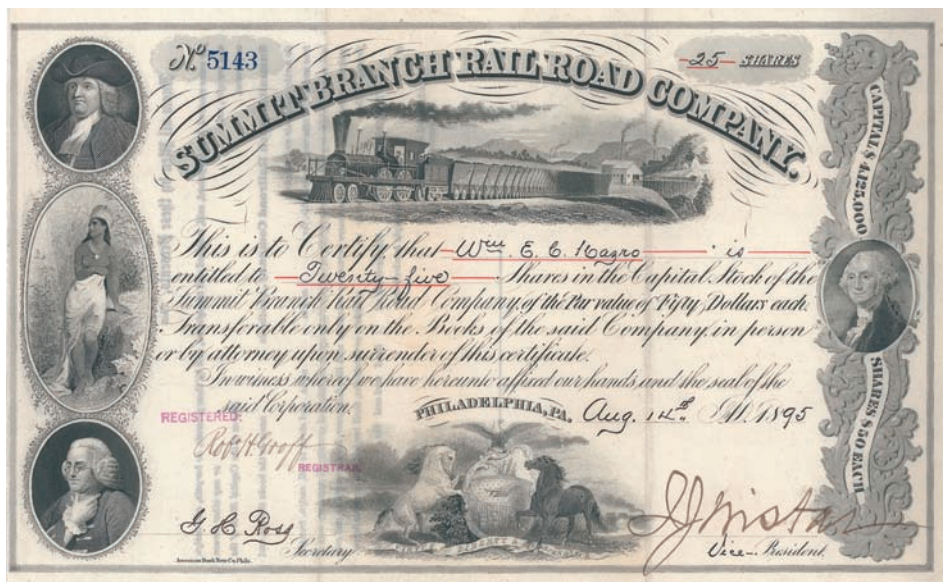 Nº 5143
-25- SHARES
SUMMIT BRANCH RAIL ROAD COMPANY.
CAPITAL $ 4,125,000
This is to Certify, that Wm. E. C. is
entitled to Twenty-five Shares in the Capital Stock of the
Summit Branch Rail Road Company, of the Par value of Fifty Dollars each.
Transferable only on the Books of the said Company, in person
or by attorney upon surrender of this certificate.
In witness whereof we have hereunto affixed our hands, and the seal of the
said Corporation.
SHARES $50 EACH
PHILADELPHIA, PA. Aug. 14th A.D. 1895
REGISTERED:
Robt H Groff
REGISTRAR.
G H Ross
Secretary
Vice- President.
American Bank Note Co. Phila.